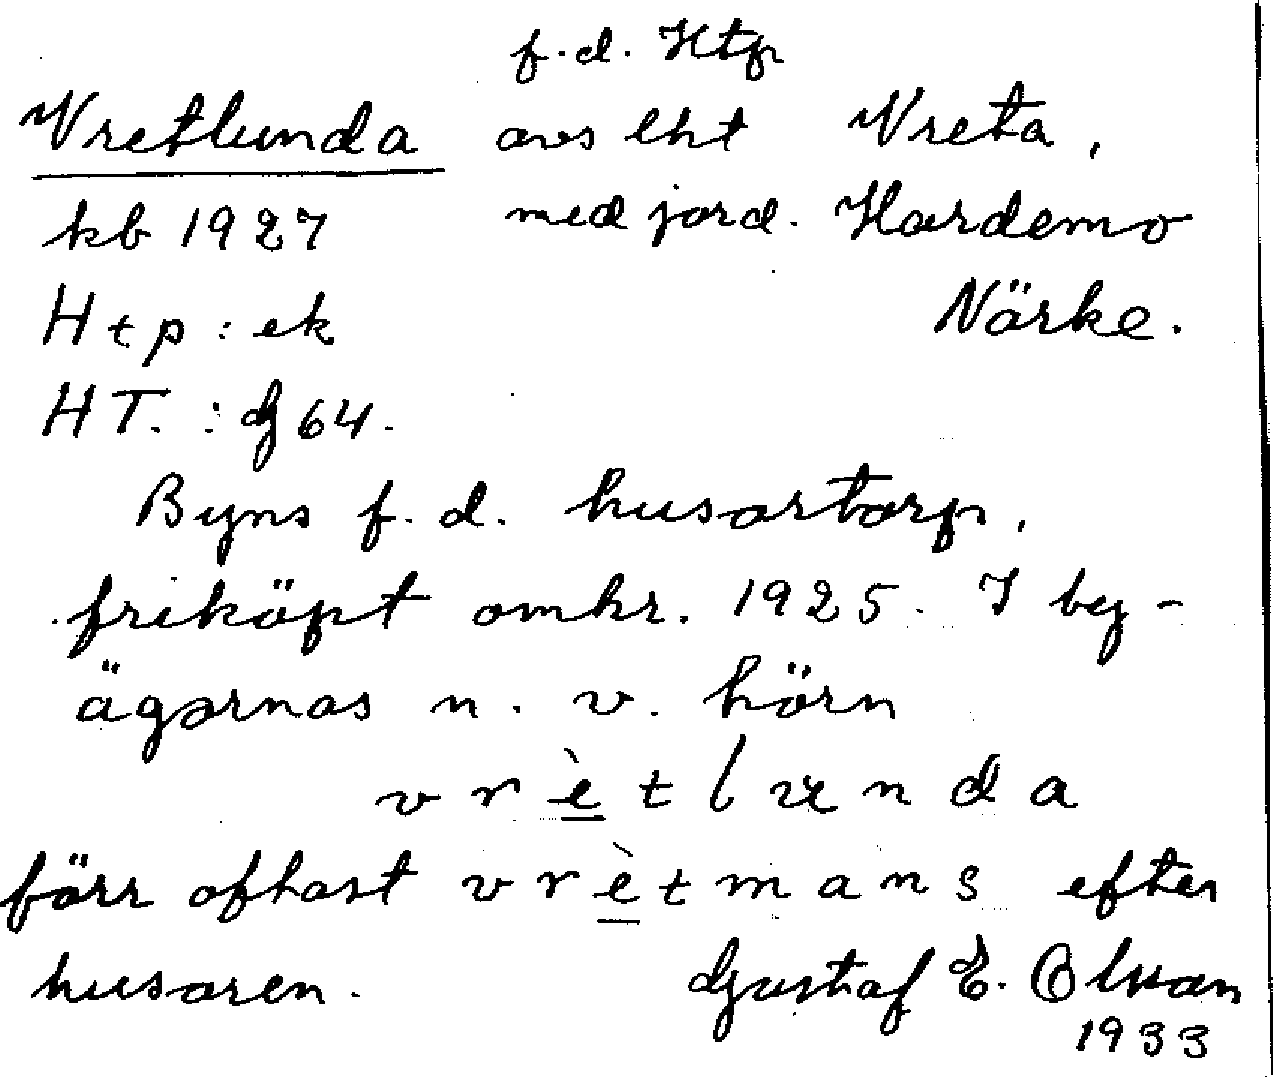 f.d. Htp
Vretlunda avs lht Vreta,
kb 1927 med jord. Hardemo
Htp: ek Närke.
HT. : G 64.
Byns f.d. husartorp,
friköpt omkr. 1925. I by-
ägornas n.v. hörn
vrè̱tlunda
förr oftast vrè̱tmans efter
husaren. Gustaf E. Olsson
1933